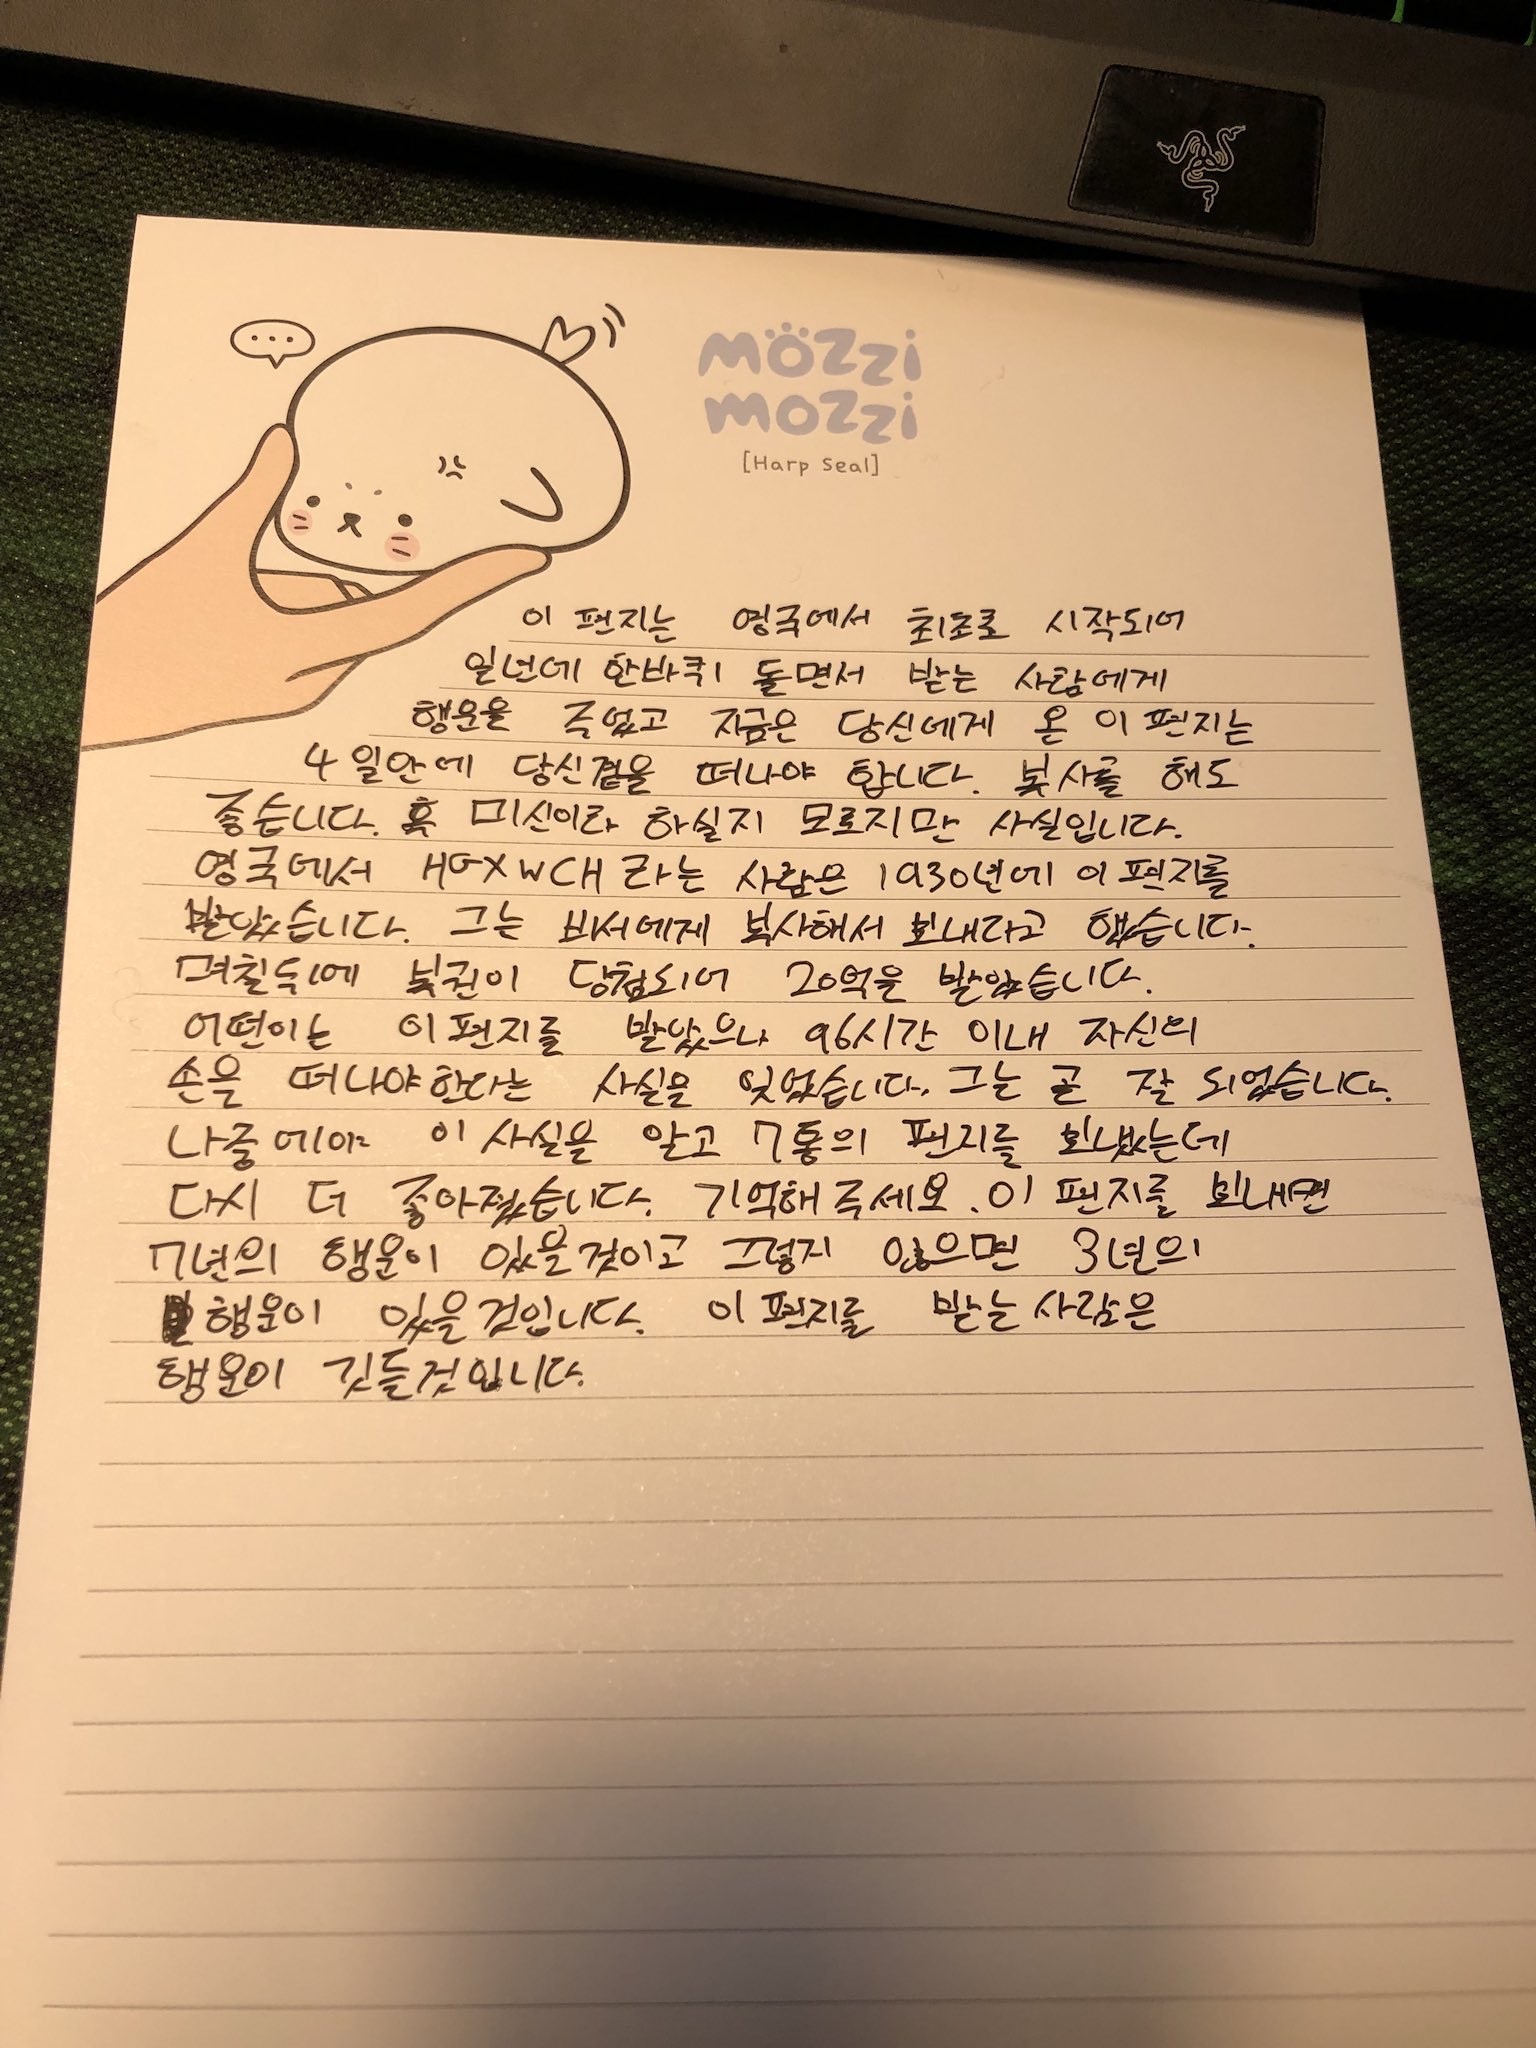 ...
MöZZi
MOZZi
[Harp Seal]
이 편지는 영국에서 최초로 시작되어
일년에 한바퀴 돌면서 받는 사람에게
행운을 주었고 지금은 당신에게 온 이 편지는
4일안에 당신곁을 떠나야 합니다. 복사를 해도
좋습니다. 혹 미신이라 하실지 모르지만 사실입니다.
영국에서 HGXWCH라는 사람은 1930년에 이 편지를
받았습니다. 그는 비서에게 복사해서 보내라고 했습니다.
며칠뒤에 복권이 당첨되어 20억을 받았습니다.
어떤이는 이 편지를 받았으나 96시간 이내 자신의
손을 떠나야한다는 사실을 잊었습니다. 그는 곧 잘 되었습니다.
나중에야 이 사실을 알고 7통의 편지를 보냈는데
다시 더 좋아졌습니다. 기억해주세요. 이 편지를 보내면
7년의 행운이 있을것이고 그렇지 않으면 3년의
행운이 있을것입니다. 이 편지를 받는 사람은
행운이 깃들것입니다.